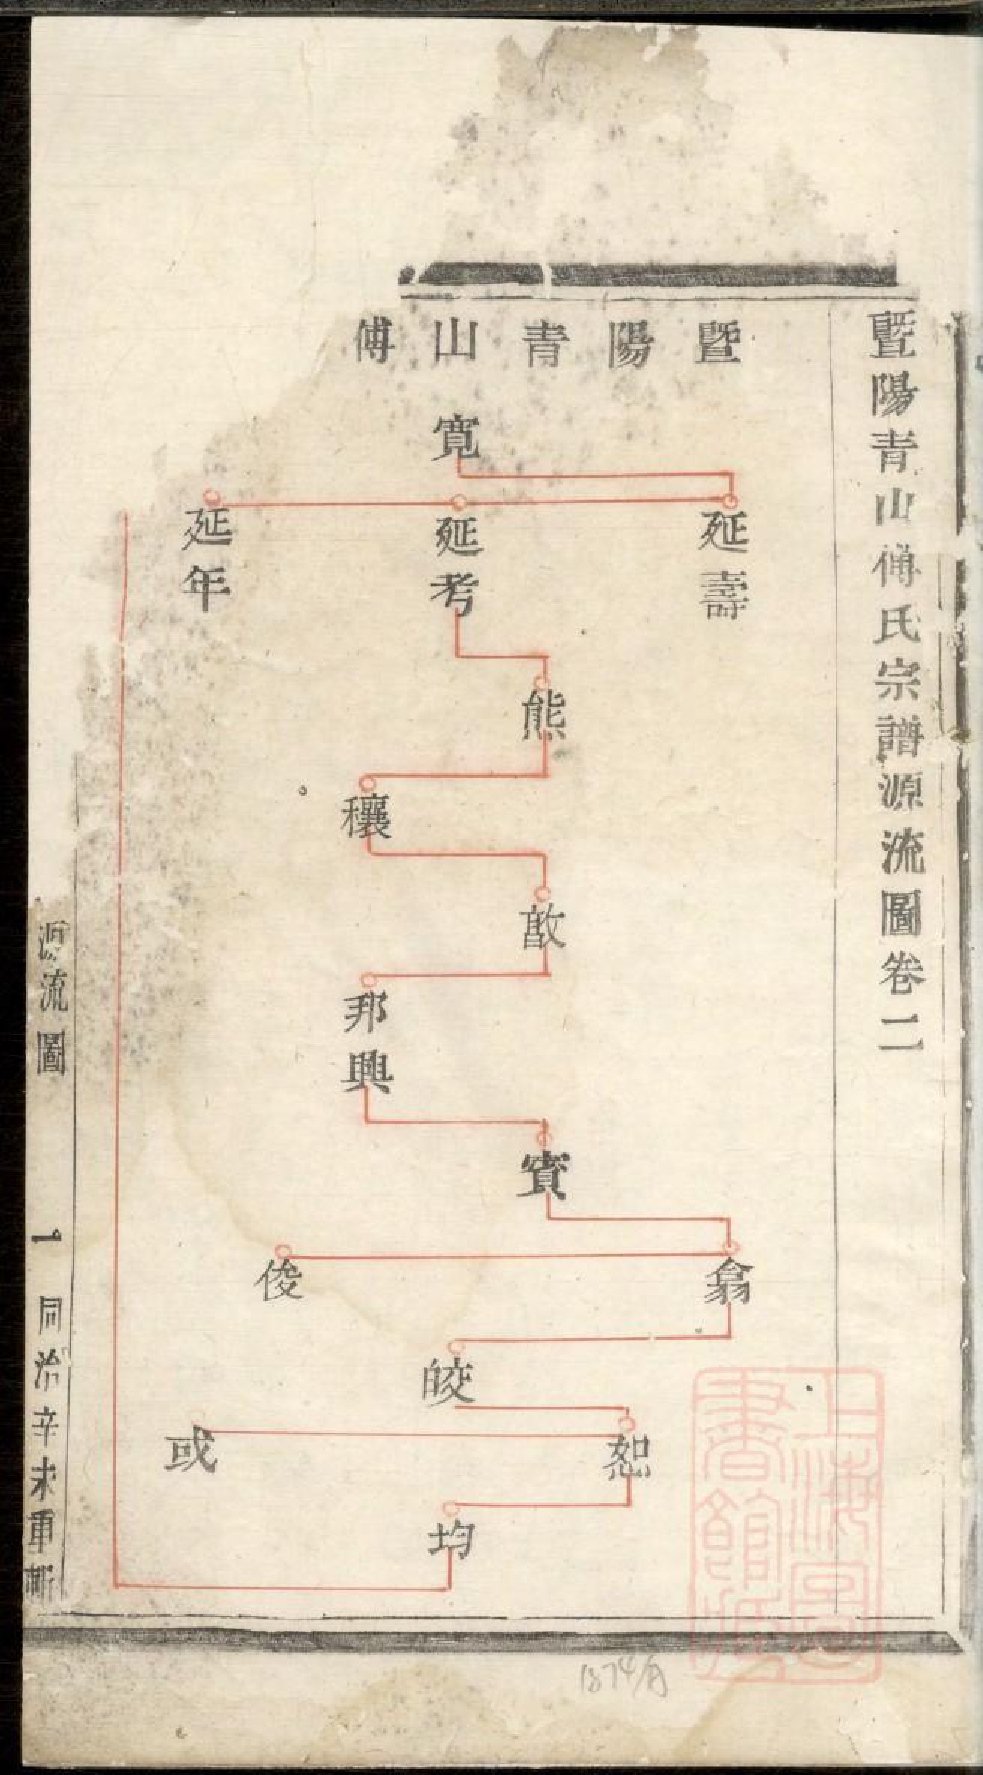 暨陽青山傅氏宗譜源流圖卷二
暨陽青山傅
寬
延壽
延考
延年
熊
穰
敨
邦興
賓
翕
俊
皎
恕
或
均
源流圖
一
同治辛未重
上海圖書館藏